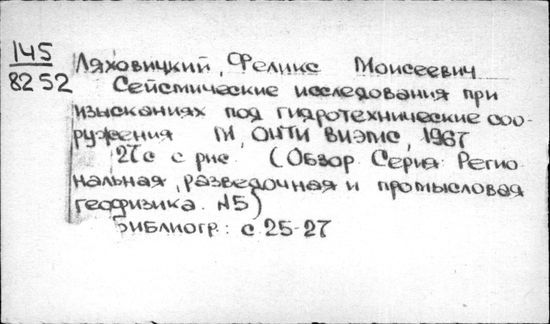 145
8252
Ляховицкий, Феликс Моисеевич
Сейсмические исследования при
изысканиях под гидротехнические соо-
ружения М, ОНТИ ВИЭМС, 1967
27с с рис. (Обзор. Серия: Регио
нальная, разведочная и промысловая
геофизика. N5)
Библиогр.: с 25-27